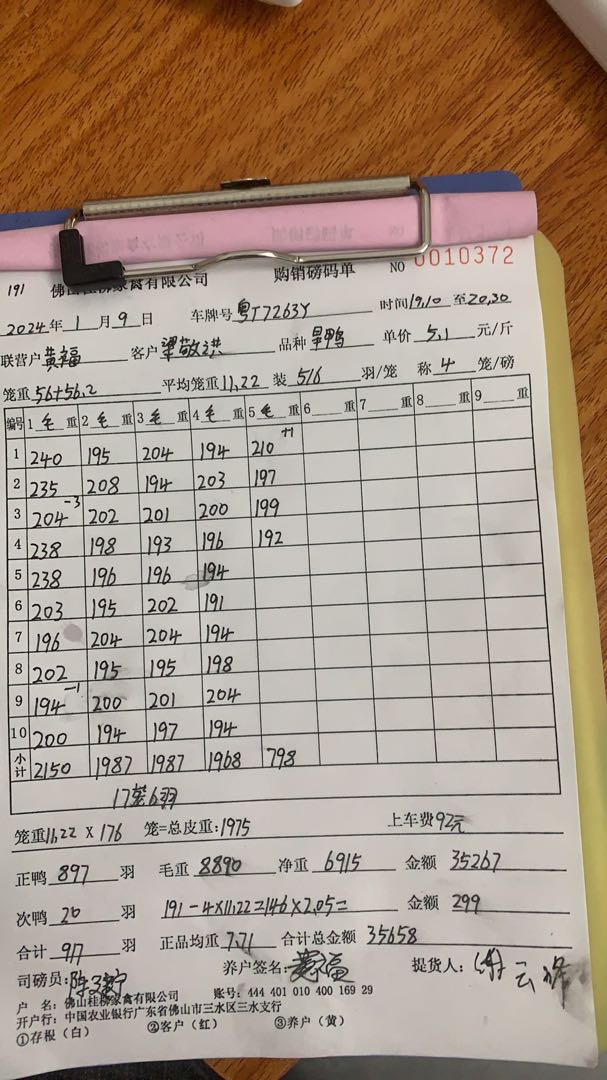 191 佛山桂柳家禽有限公司 购销磅码单 NO 0010372
2024年1月9日 车牌号 粤T7263Y 时间19,10至20,30
联营户 黄福 客户 梁敬洪 品种 旱鸭 单价 5,1 元/斤
笼重 56+56.2 平均笼重 11,22 装 5/6 羽/笼 称 4 笼/磅
编号 1毛重 2毛重 3毛重 4毛重 5毛重 6重 7重 8重 9重
1 240 195 204 194 210 +1
2 235 208 194 203 197
3 204 -3 202 201 200 199
4 238 198 193 196 192
5 238 196 196 194
6 203 195 202 191
7 196 204 204 194
8 202 195 195 198
9 194 -1 200 201 204
10 200 194 197 194
小计 2150 1987 1987 1968 798
17笼6羽
笼重11.22 X 176 笼=总皮重:1975 上车费92元
正鸭 897 羽 毛重 8890 净重 6915 金额 35267
次鸭 20 羽 191-4×11,22=146×2.05= 金额 299
合计 917 羽 正品均重 7.71 合计总金额 35658
司磅员: 养户签名: 黄福 提货人:
户 名: 佛山桂柳家禽有限公司 账号: 444 401 010 400 169 29
开户行: 中国农业银行广东省佛山市三水区三水支行
①存根（白） ②客户（红） ③养户（黄）